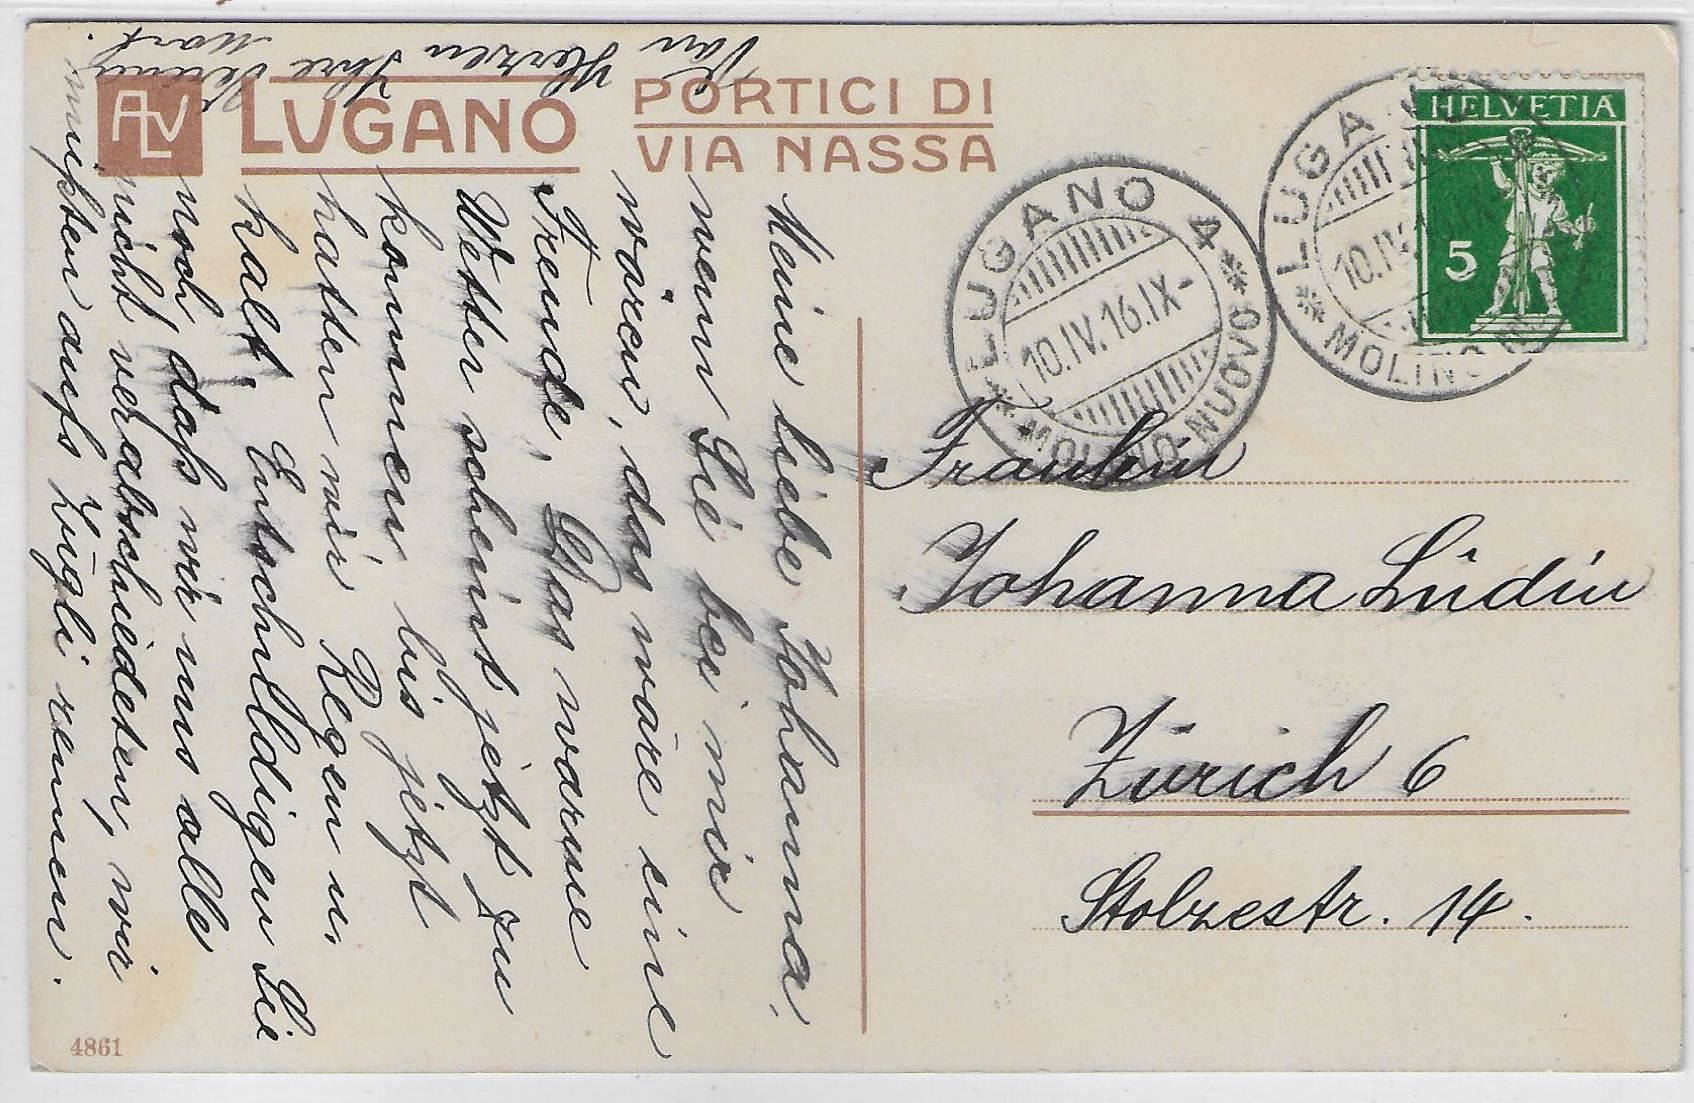 ALV
LUGANO
PORTICI DI
VIA NASSA
LUGANO 4
10.IV.16.IX-
MOLINO-NUOVO
LUGA
10.IV.
MOLINO
HELVETIA
5
Meine liebe Johanna,
wenn Sie bei mir
wären, das wäre eine
Freude, Das warme
Wetter scheint jetzt zu
kommen, bis jetzt
hatten wir Regen u.
kalt. Entschuldigen Sie
noch, daß wir uns alle
nicht verabschiedeten, wir
mußten aufs Zügli rennen.
Von Herzen Ihre
Fräulein
Johanna Lüdin
Zürich 6
Stolzestr. 14.
4861